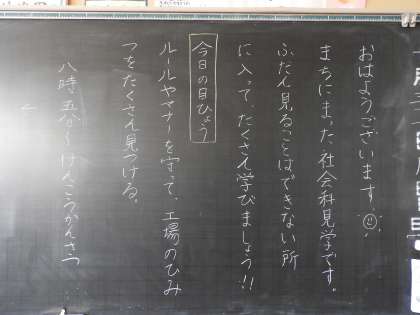 おはようございます。
まちにまった社会科見学です。
ふだん見ることはできない所
に入って、たくさん学びましょう!!
今日の目ひょう
ルールやマナーを守って、工場のひみ
つをたくさん見つける。
八時五分〜けんこうかんさつ